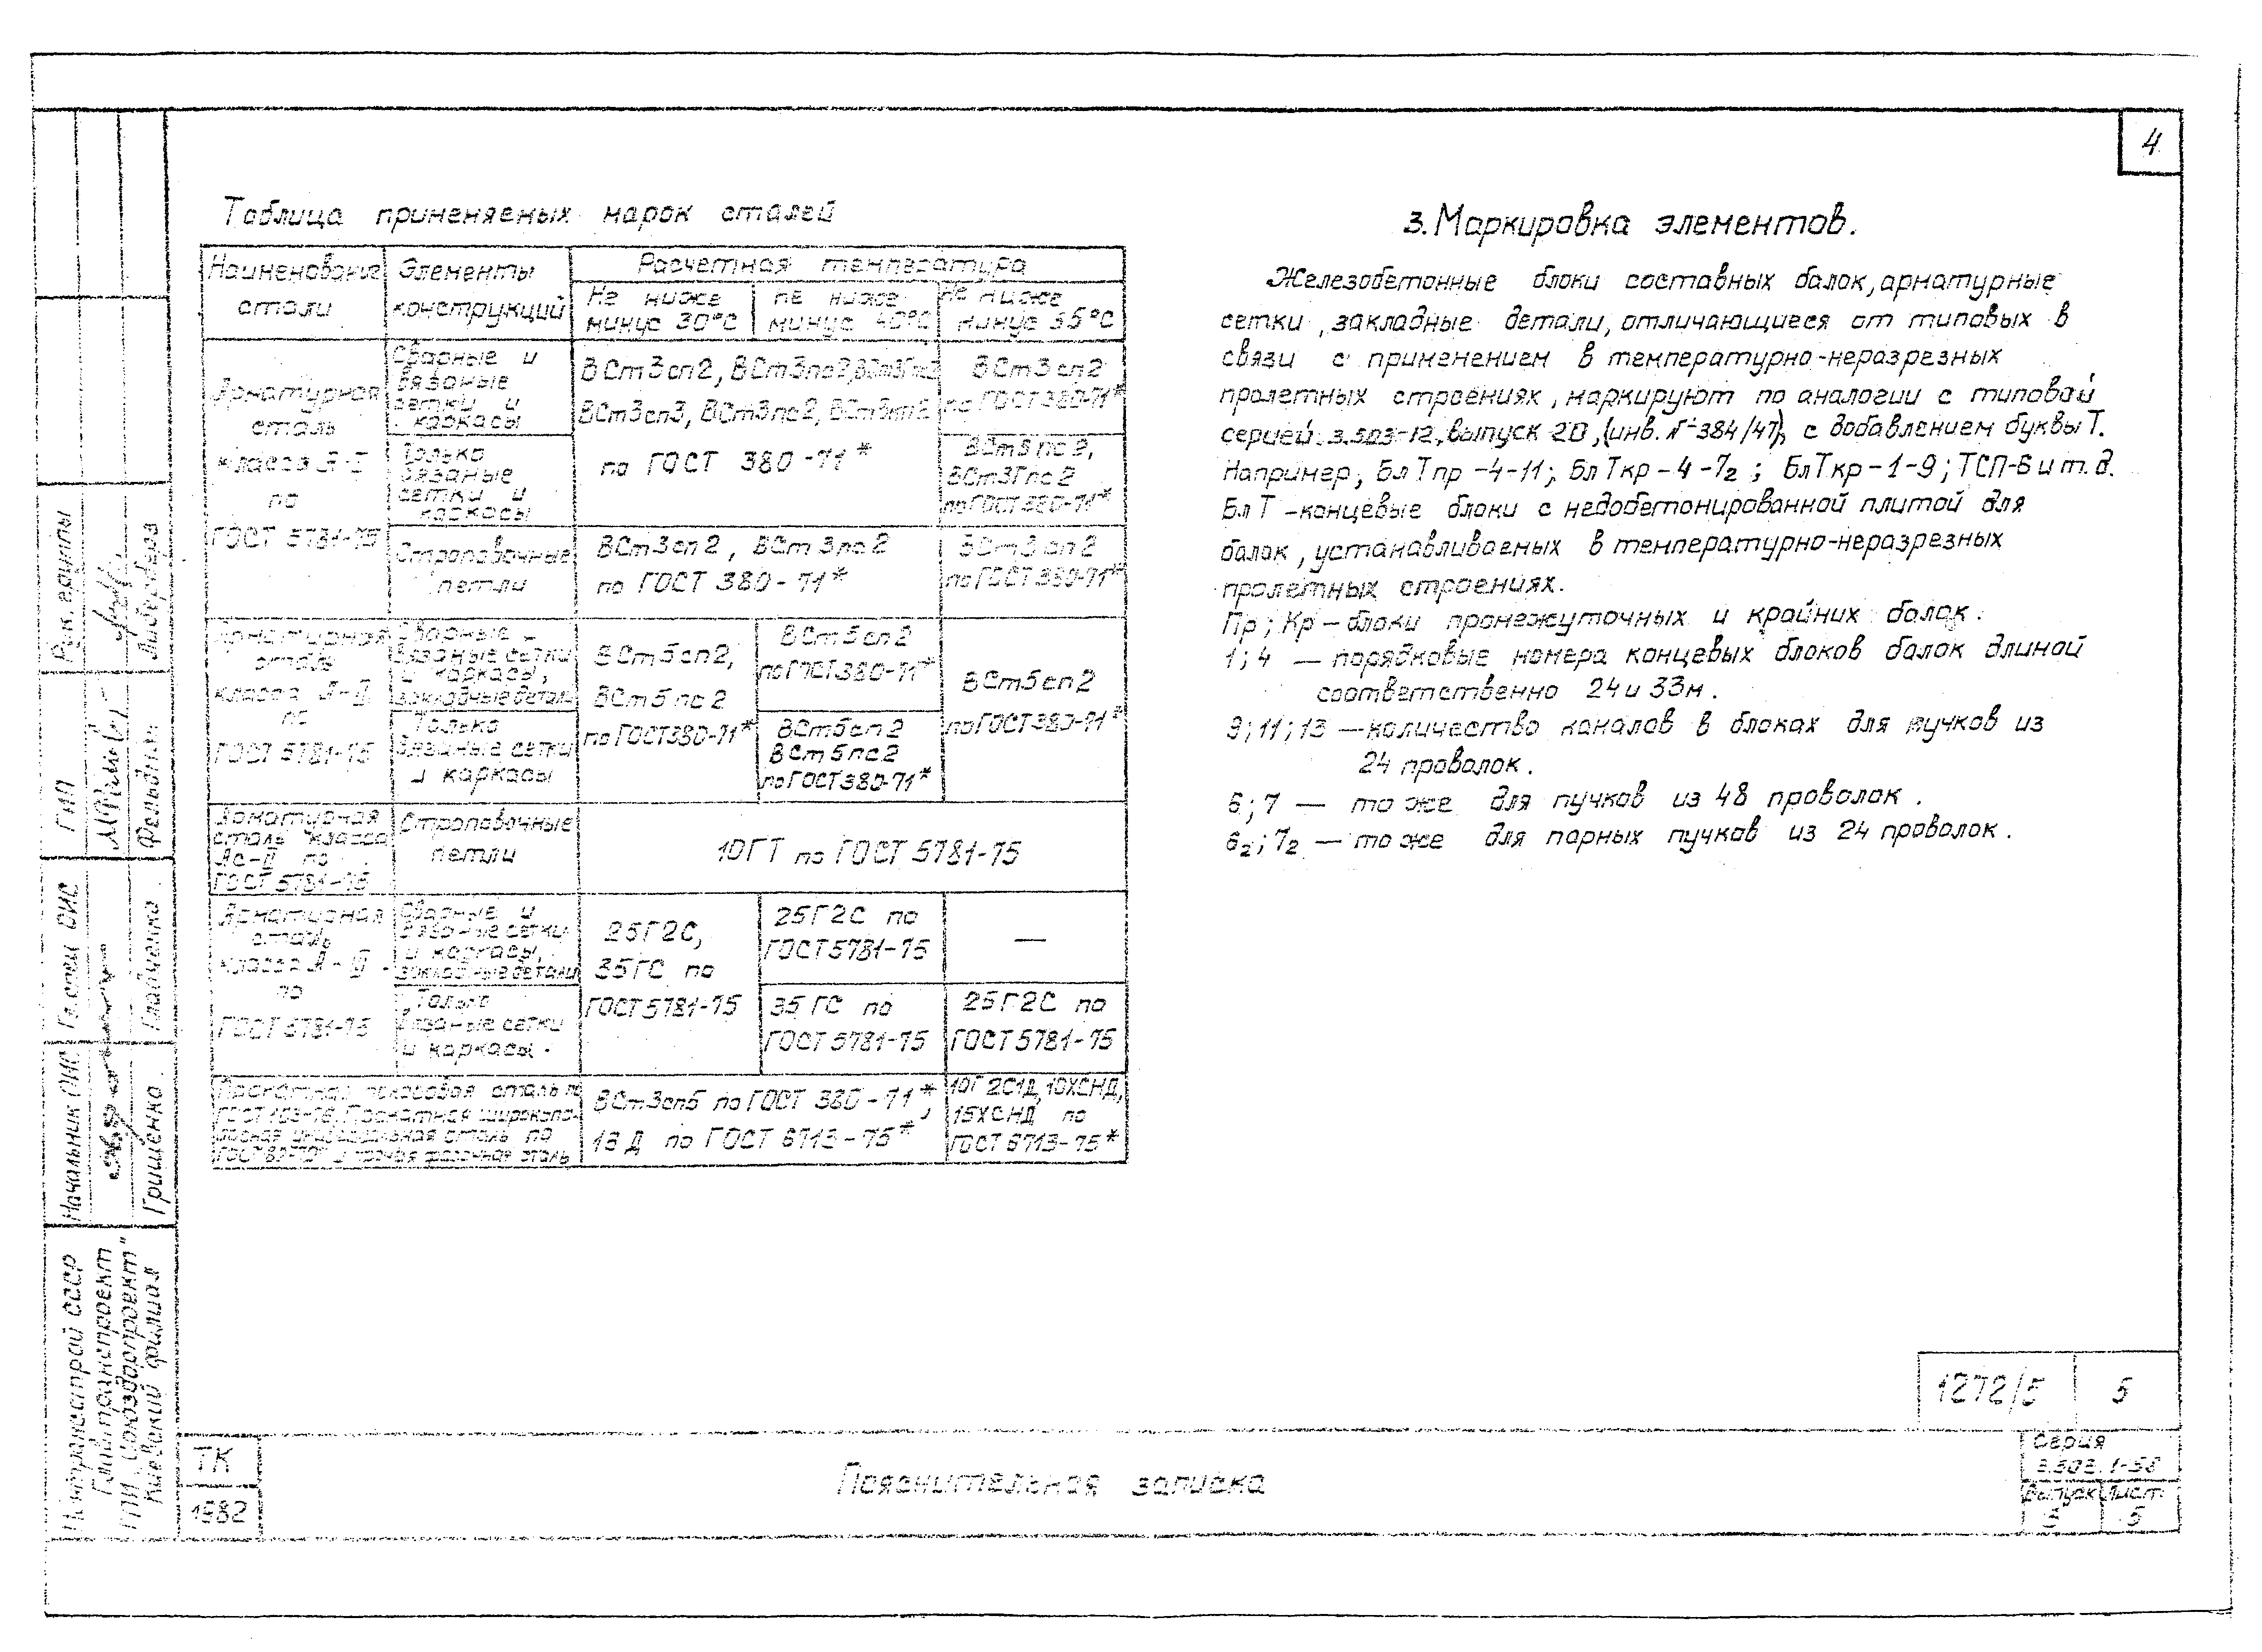 4
Таблица применяемых марок сталей
Наименование стали
Элементы конструкций
Расчетная температура
Не ниже минус 30°С
Не ниже минус 40°С
Не ниже минус 55°С
Арматурная сталь класса А-I по ГОСТ 5781-75
Сварные и вязаные сетки и каркасы
ВСт3сп2, ВСт3пс2, ВСт3Гпс2
ВСт3сп3, ВСт3пс2, ВСт3кп2
по ГОСТ 380-71*
ВСт3сп2
по ГОСТ 380-71*
Только вязаные сетки и каркасы
ВСт3пс2,
ВСт3Гпс2
по ГОСТ 380-71*
Строповочные петли
ВСт3сп2, ВСт3пс2
по ГОСТ 380-71*
ВСт3сп2
по ГОСТ 380-71*
Арматурная сталь класса А-II по ГОСТ 5781-75
Сварные и вязаные сетки и каркасы, закладные детали
ВСт5сп2,
ВСт5пс2
по ГОСТ 380-71*
ВСт5сп2
по ГОСТ 380-71*
ВСт5сп2
по ГОСТ 380-71*
Только вязаные сетки и каркасы
ВСт5сп2
ВСт5пс2
по ГОСТ 380-71*
Арматурная сталь класса Ас-II по ГОСТ 5781-75
Строповочные петли
10ГТ по ГОСТ 5781-75
Арматурная сталь класса А-III по ГОСТ 5781-75
Сварные и вязаные сетки и каркасы, закладные детали
25Г2С,
35ГС по
ГОСТ 5781-75
25Г2С по
ГОСТ 5781-75
—
Только вязаные сетки и каркасы.
35ГС по
ГОСТ 5781-75
25Г2С по
ГОСТ 5781-75
Прокатная полосовая сталь по
ГОСТ 103-76. Прокатная широкопо-
лосная универсальная сталь по
ГОСТ и прочая фасонная сталь
ВСт3сп5 по ГОСТ 380-71*,
16Д по ГОСТ 6713-75*
10Г2С1Д, 10ХСНД,
15ХСНД по
ГОСТ 6713-75*
3. Маркировка элементов.
Железобетонные блоки составных балок, арматурные
сетки, закладные детали, отличающиеся от типовых в
связи с применением в температурно-неразрезных
пролетных строениях, маркируют по аналогии с типовой
серией 3.503-12, выпуск 20, (инв. № 384/47), с добавлением буквы Т.
Например, БлТпр-4-11; БлТкр-4-7₂; БлТкр-1-9; ТСП-6 и т.д.
БлТ - концевые блоки с недобетонированной плитой для
балок, устанавливаемых в температурно-неразрезных
пролетных строениях.
Пр; Кр - блоки промежуточных и крайних балок.
1; 4 — порядковые номера концевых блоков балок длиной
соответственно 24 и 33м.
9; 11; 13 — количество каналов в блоках для пучков из
24 проволок.
6; 7 — то же для пучков из 48 проволок.
6₂; 7₂ — то же для парных пучков из 24 проволок.
Рук. группы
ГИП
Фельдман
Гл. спец ОИС
Гладченко
Начальник ОИС
Гриценко
Минтрансстрой СССР
Главтранспроект
ГПИ „Союздорпроект"
Киевский филиал
ТК
1982
Пояснительная записка
1272/5
5
Серия
3.503.1-58
Выпуск
5
Лист
5